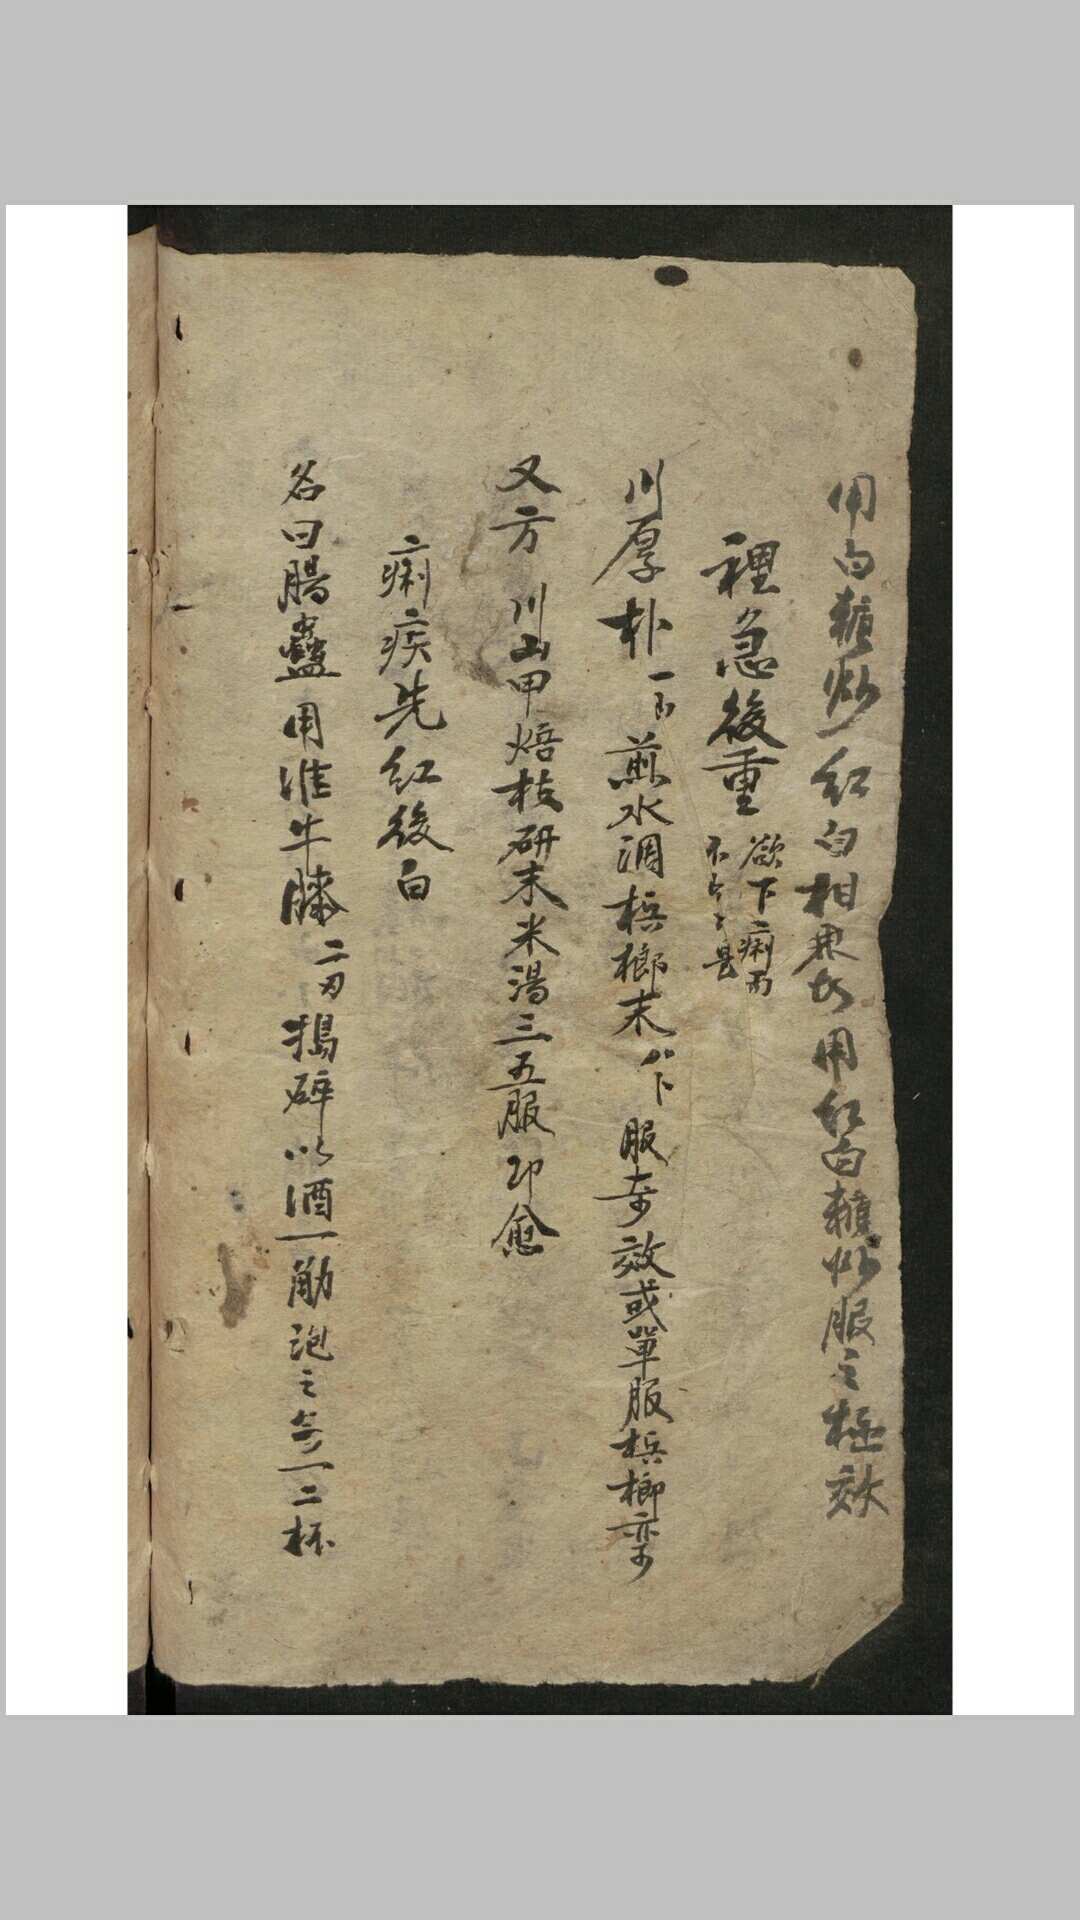 用白糖炒紅白相兼者用紅白糖炒服之極效
裡急後重
欲下痢而
不下是
川厚朴一兩煎水調槟榔末八卜服奇效或單服槟榔亦可
又方川山甲焙枝研末米湯三五服即愈
痢疾先紅後白
名曰腸蠱用淮牛膝二两搗碎以酒一觔泡之每一二杯